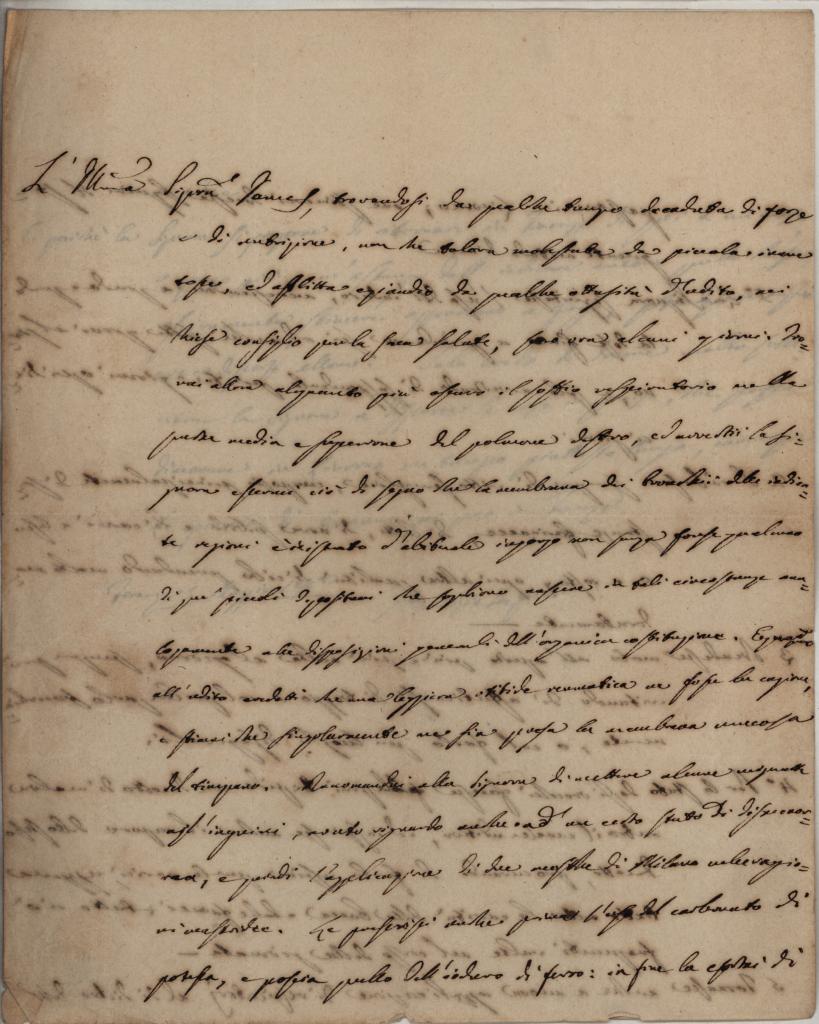 L'Illma Sigra James, trovandosi da qualche tempo decaduta di forze
e di nutrizione, non che talora molestata da piccola
tosse, ed afflitta eziandio da qualche ottusità d'udito, mi
chiese consiglio per la sua salute, sono ora alcuni giorni. Tro-
vai allora alquanto più oscuro il soffio respiratorio nella
parte media e superiore del polmone destro, ed avvertii la Si-
gnora essermi ciò di segno che la membrana dei bronchi delle indica-
te regioni è d'abituale ingorgo non senza forse qualcuno
di que' piccoli depositi che sogliono nascere in tali circostanze ana-
logamente alle disposizioni generali dell'organica costituzione. E quanto
all'udito credetti che una leggiera otitide reumatica ne fosse la cagione,
e stimai che singolarmente ne sia presa la membrana mucosa
del timpano. Raccomandai alla Signora di mettere alcune mignatte
agl'inguini, avuto riguardo anche ad un certo stato di dismenor-
rea, e quindi l'applicazione di due mosche di Milano nelle regio-
ni mastoidee. Le prescrissi anche prima l'uso del carbonato di
potassa, e poscia quello dell'ioduro di ferro: in fine la esortai di